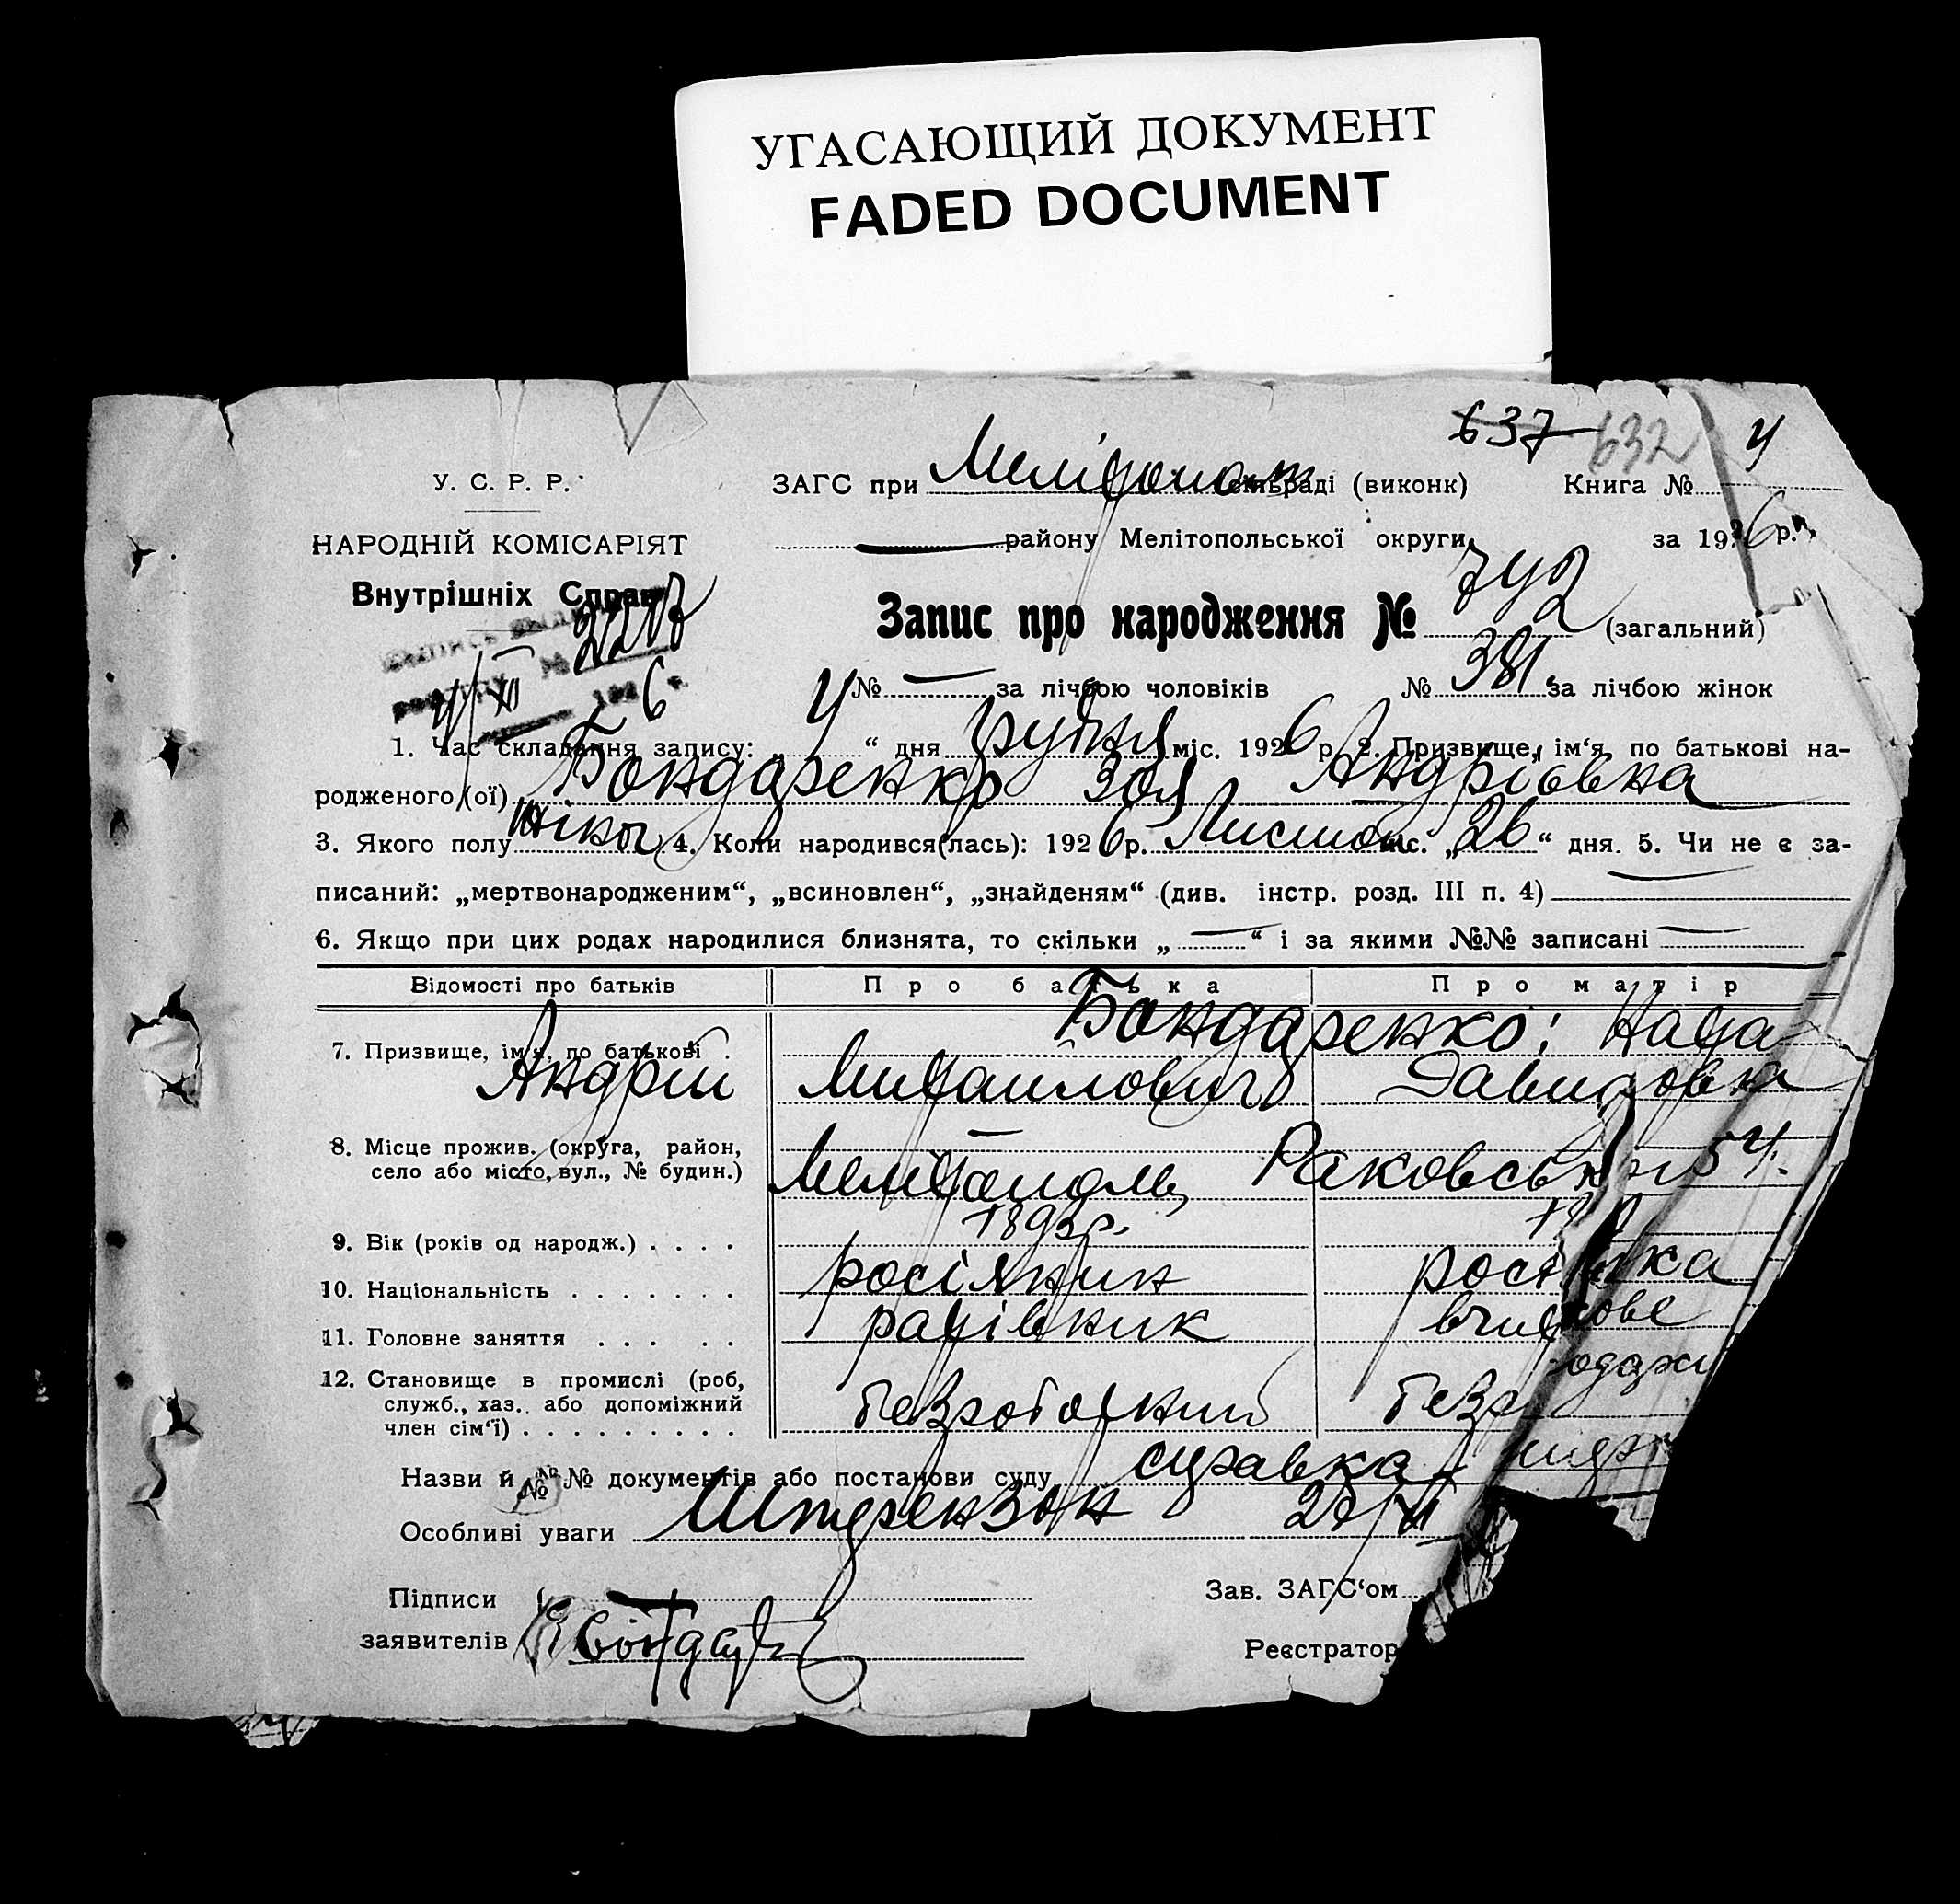 УГАСАЮЩИЙ ДОКУМЕНТ
FADED DOCUMENT
637 632
У. С. Р. Р. ЗАГС при сільраді (виконк) Книга № 4
НАРОДНІЙ КОМІСАРІЯТ району Мелітопольської округи за 1926 р.
Внутрішніх Справ
Запис про народження № 742 (загальний)
№ — за лічбою чоловіків № 381 за лічбою жінок
1. Час складання запису: „4“ дня грудня міс. 1926 р. 2. Призвище, ім'я, по батькові на-
родженого (ої) Бондаренко Зоя Андріовна
3. Якого полу жіноч 4. Коли народився(лась): 1926 р. Листопа міс. „26“ дня. 5. Чи не є за-
писаний: „мертвонародженим“, „всиновлен“, „знайденям“ (див. інстр. розд. III п. 4) —
6. Якщо при цих родах народилися близнята, то скільки „—“ і за якими №№ записані —
Відомості про батьків Про батька Про матір
Бондаренко:
7. Призвище, ім'я, по батькові
Андрій Михаилович Давидовна
8. Місце прожив. (округа, район,
село або місто, вул., № будин.) Мелітополь, 54.
9. Вік (років од народж.) 1893 р.
10. Національність росіянин росіянка
11. Головне заняття
12. Становище в промислі (роб, служб., хаз. або допоміжний член сім'ї) безроботний
Назви й №№ документів або постанови суду справка
Особливі уваги 27/XI
Підписи Зав. ЗАГС'ом
заявителів Реєстратор